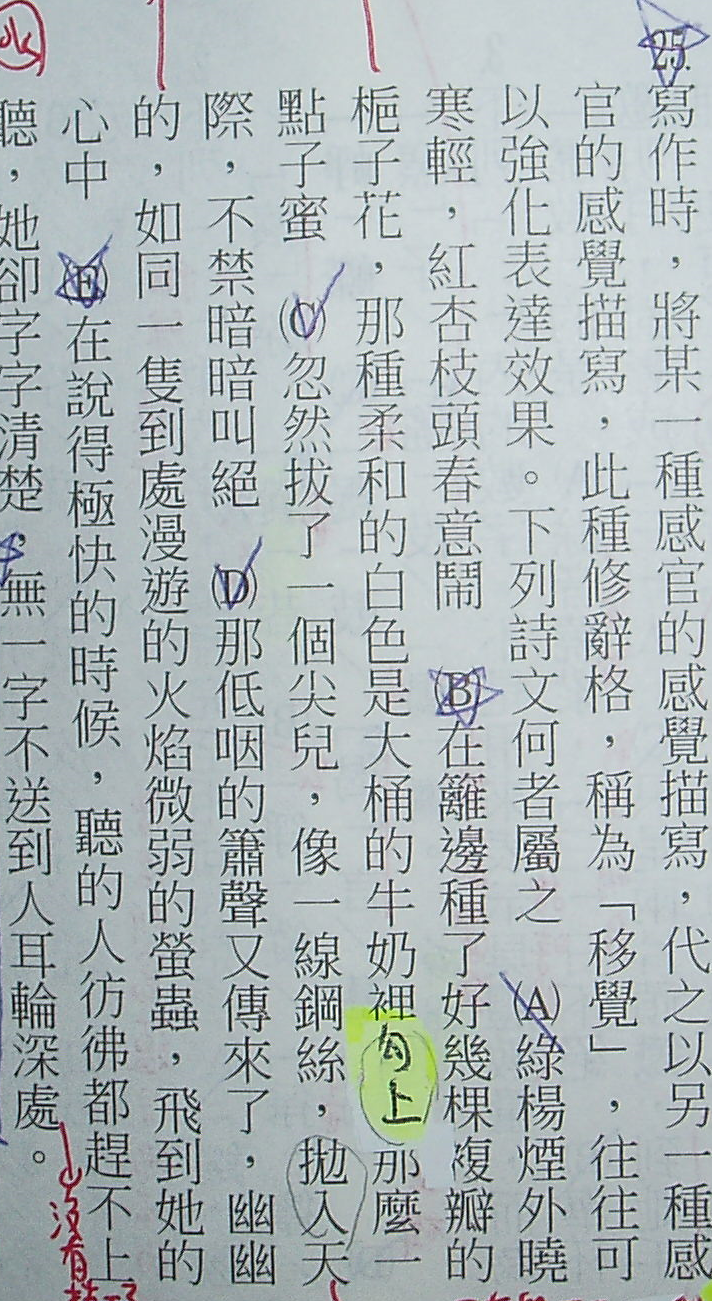 25.寫作時，將某一種感官的感覺描寫，代之以另一種感
官的感覺描寫，此種修辭格，稱為「移覺」，往往可
以強化表達效果。下列詩文何者屬之　(A)綠楊煙外曉
寒輕，紅杏枝頭春意鬧　(B)在籬邊種了好幾棵複瓣的
梔子花，那種柔和的白色是大桶的牛奶裡勾上那麼一
點子蜜　(C)忽然拔了一個尖兒，像一線鋼絲，拋入天
際，不禁暗暗叫絕　(D)那低咽的簫聲又傳來了，幽幽
的，如同一隻到處漫遊的火焰微弱的螢蟲，飛到她的
心中　(E)在說得極快的時候，聽的人彷彿都趕不上
聽，她卻字字清楚，無一字不送到人耳輪深處。
沒有